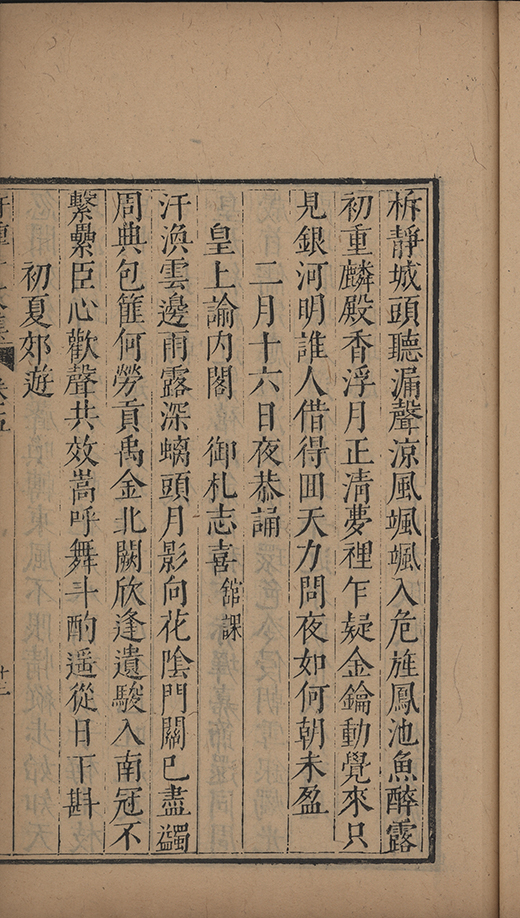 柝靜城頭聽漏聲凉風颯颯入危旌鳳池魚醉露
初重麟殿香浮月正清夢裡乍疑金鑰動覺來只
見銀河明誰人借得回天力問夜如何朝未盈
二月十六日夜恭誦
皇上諭内閣 御札志喜 舘課
汗渙雲邊雨露深螭頭月影向花陰門關已盡蠲
周典包篚何勞貢禹金北闕欣逢遺駿入南冠不
繫纍臣心歡聲共效嵩呼舞斗酌遥從日下斟
初夏郊遊
十三